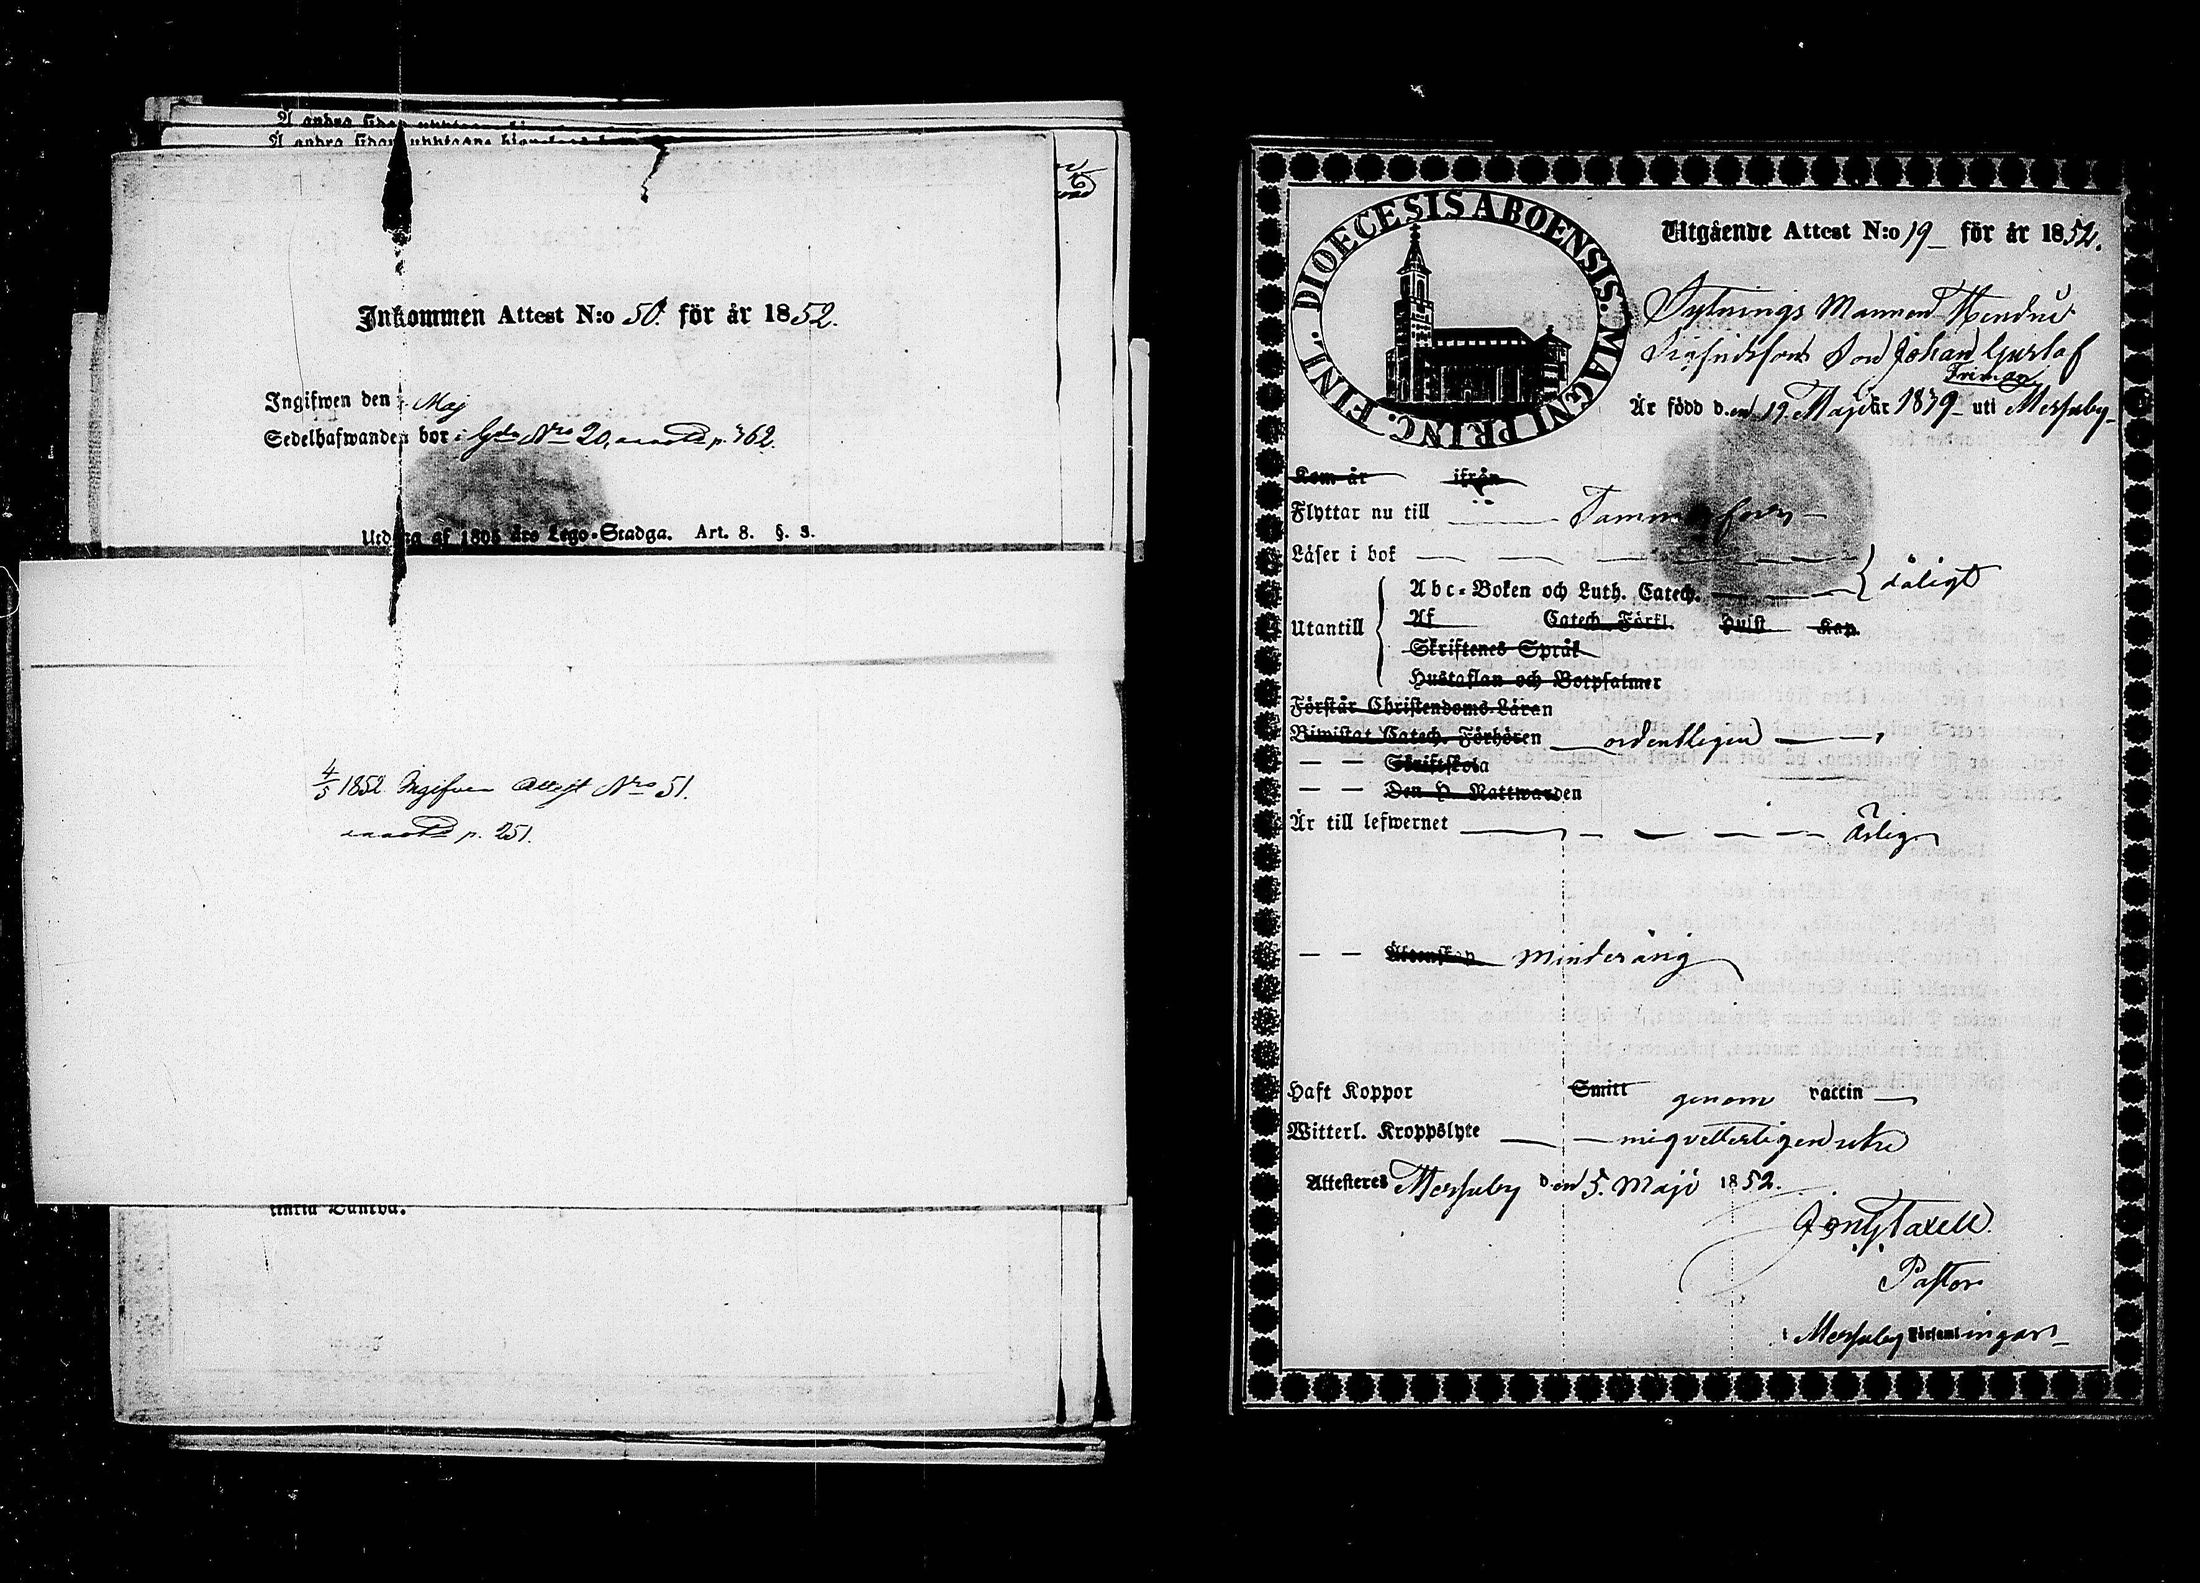 Å andra sidan
Å andra sidan upptagne
Inkommen Attest N:o 50. för år 1852.
Ingifwen den Maj
Sedelhafwanden bor i Gdn Nro 20, p. 362.
Utdrag af 1805 års Lego-Stadga. Art. 8. §. 3.
4/5 1852 Ingifven Attest Nro 51.
p. 251.
DIOECESIS ABOENSIS. MAGNI PRINC. FINL.
Utgående Attest N:o 19 för år 1852.
Sytnings Mannen
Son Johan Gustaf
Friman
Är född den 19 Maji år 1839 uti Messuby
Kom år ifrån
Flyttar nu till Tammerfors
Läser i bok
Abc-Boken och Luth. Catech. dåligt
Utantill
Af Catech. Förkl. Hust. Kap.
Skriftenes Språk
Hustaflan och Botpsalmer
Förstår Christendoms-Läran
Biwistat Catech. Förhören ordentligen
— — Skriftskola
— — Den H. Nattwarden
Är till lefwernet Ärlig
— — Äktenskap minderårig
Haft Koppor Smitt genom vaccin
Witterl. Kroppslyte
Attesteres Messuby den 5. Maji 1852.
Taxell
Pastor
i Messuby Församlingar